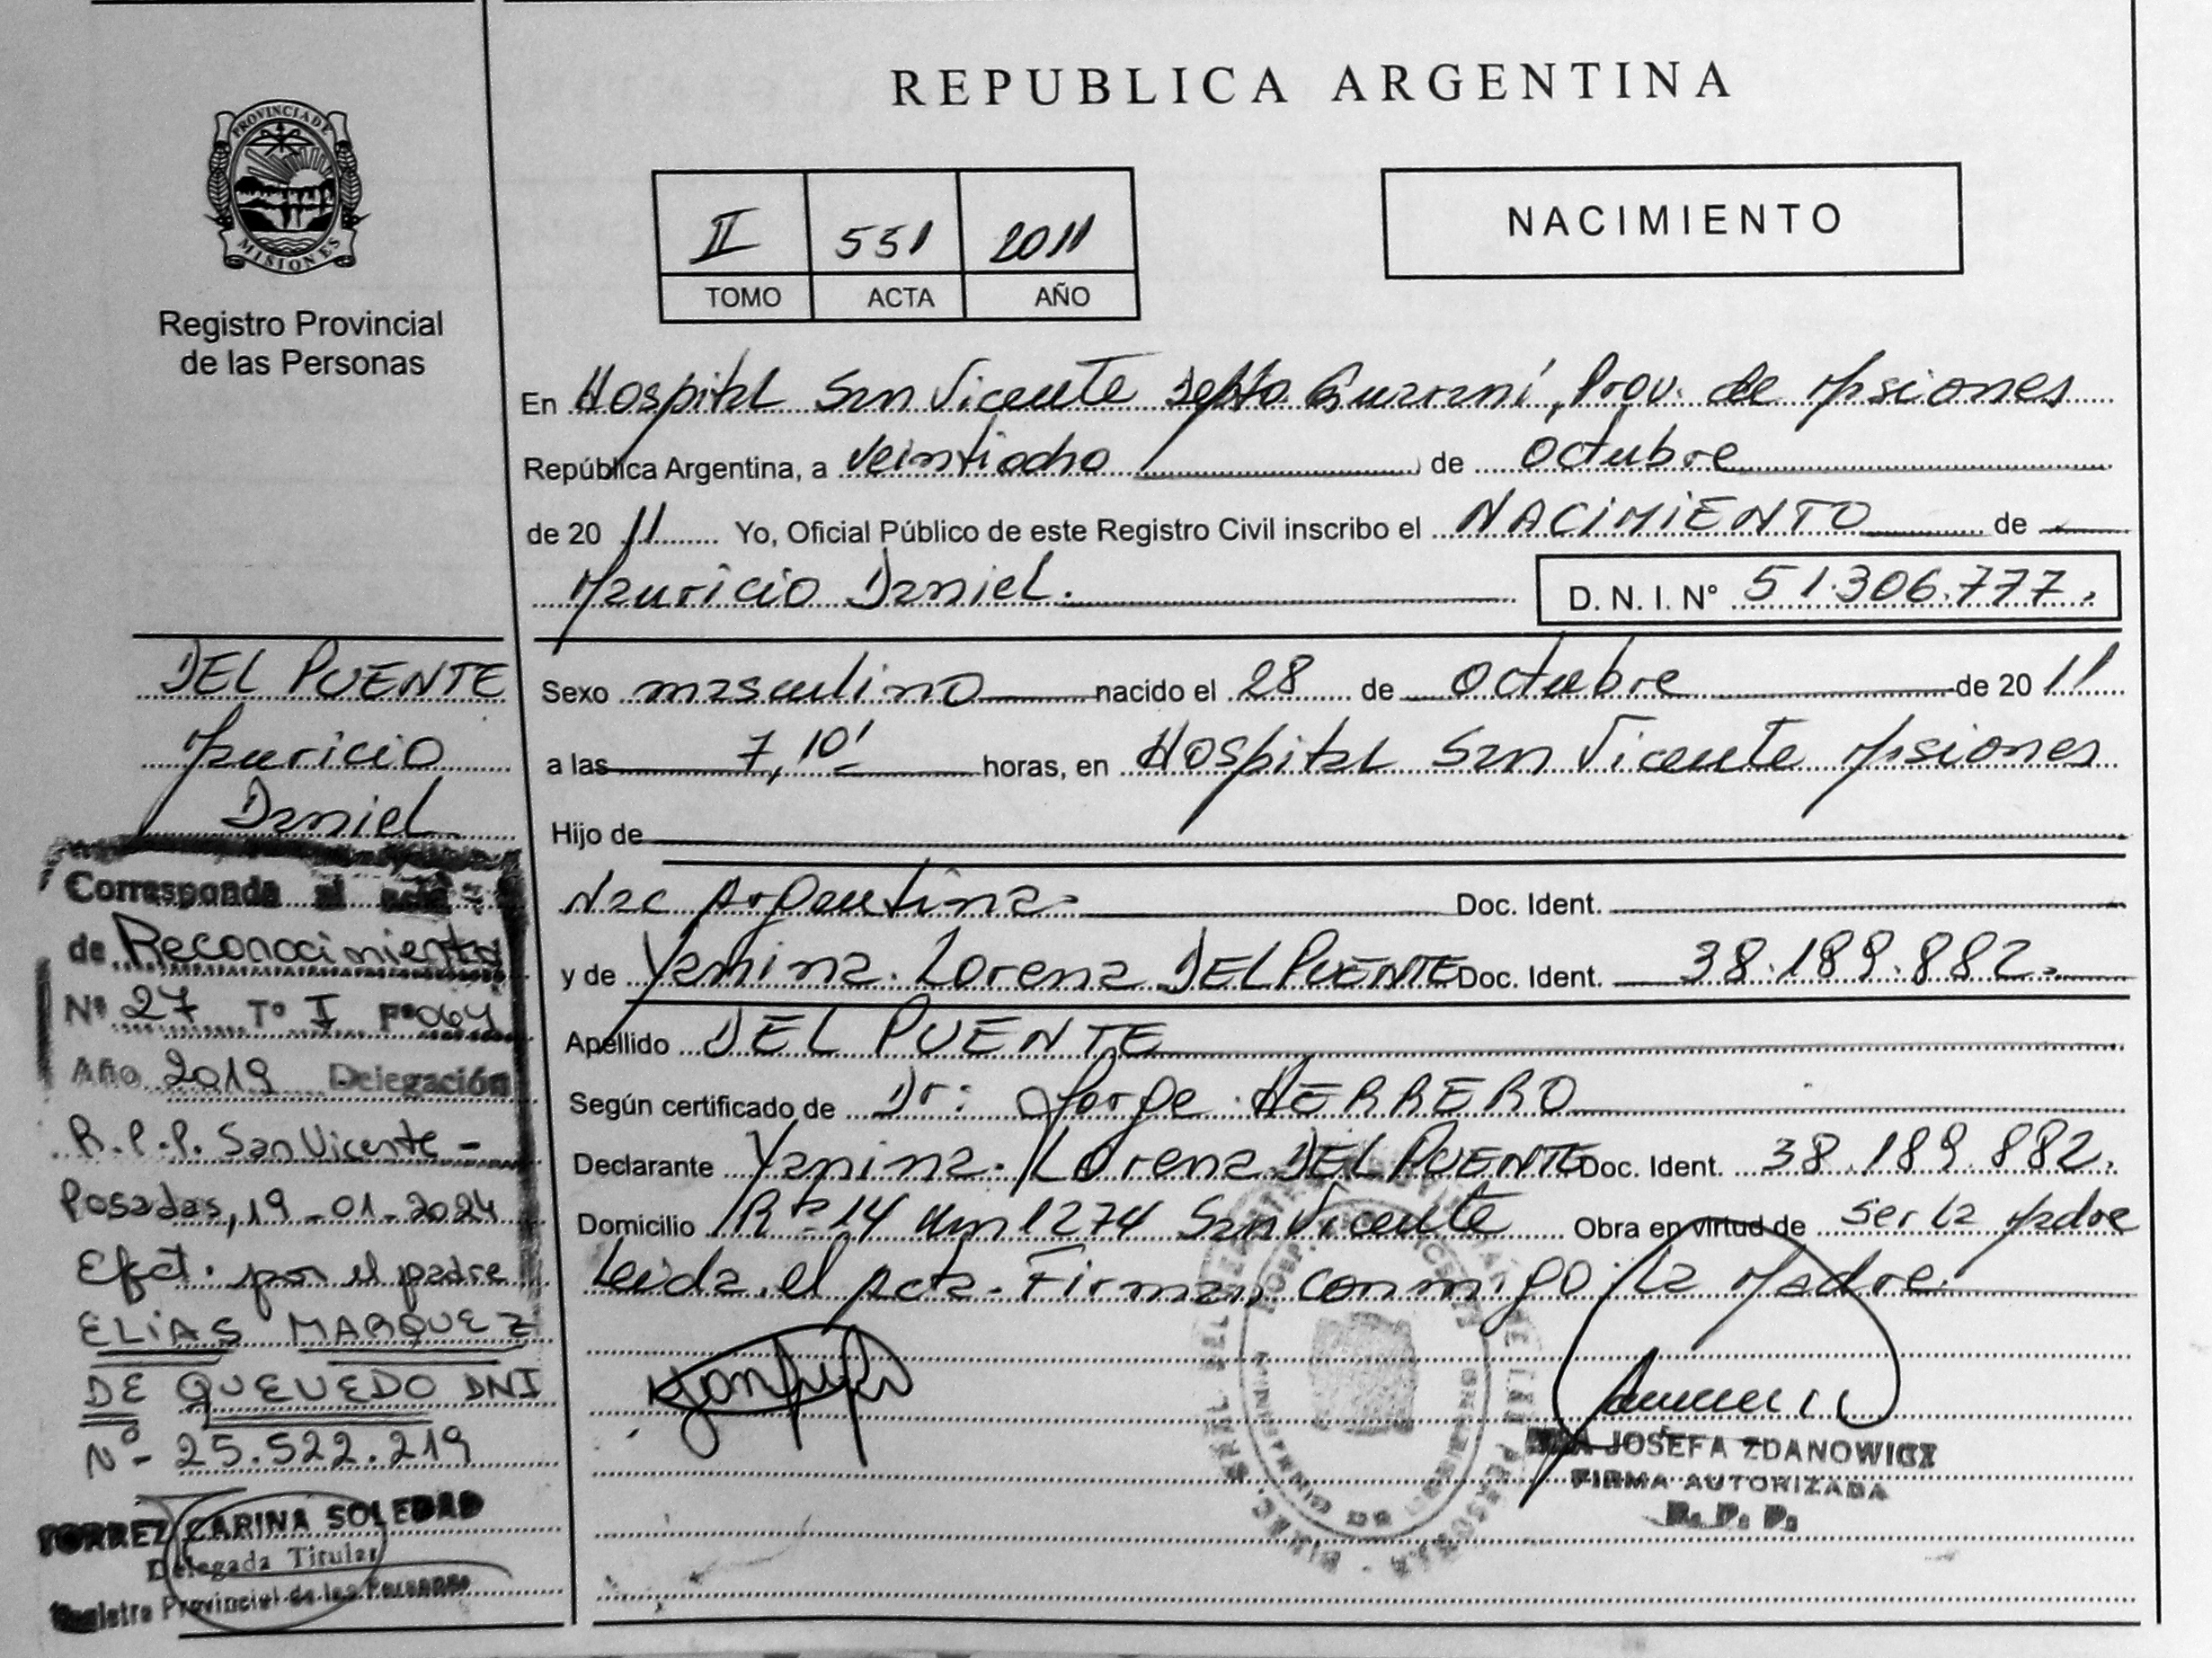 REPUBLICA ARGENTINA
PROVINCIA DE
MISIONES
Registro Provincial
de las Personas
II 551 2011
TOMO ACTA AÑO
NACIMIENTO
En Hospital San Vicente Depto Guaraní, Prov. de Misiones
República Argentina, a veintiocho de octubre
de 20 11 Yo, Oficial Público de este Registro Civil inscribo el NACIMIENTO de
Mauricio Daniel.
D. N. I. N° 51.306.777.
Sexo masculino nacido el 28 de octubre de 20 11
a las 7,10' horas, en Hospital San Vicente Misiones
Hijo de
Nac Argentina Doc. Ident.
y de Yanina Lorena DEL PUENTE Doc. Ident. 38.189.882.
Apellido DEL PUENTE
Según certificado de Dr: Jorge HERRERO
Declarante Yanina Lorena DEL PUENTE Doc. Ident. 38.189.882.
Domicilio Rta 14 Km 1274 San Vicente Obra en virtud de ser la Madre
Leida el Acta. Firman conmigo la Madre.
JOSEFA ZDANOWICZ
FIRMA AUTORIZADA
R. P. P.
DEL PUENTE
Mauricio
Daniel
Corresponde al acta
de Reconocimiento
Nº 27 Tº I Fº 064
Año 2019 Delegación
R.P.P. San Vicente -
Posadas, 19-01-2024
Efct. por el padre
ELIAS MARQUEZ
DE QUEVEDO DNI
Nº- 25.522.219
TORREZ CARINA SOLEDAD
Delegada Titular
Registro Provincial de las Personas